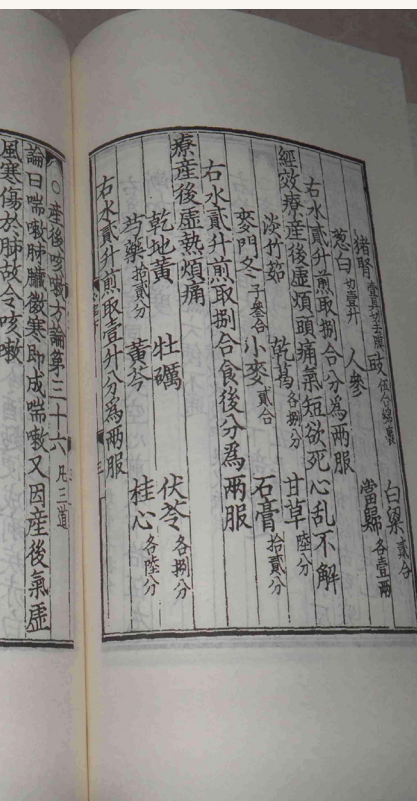 猪腎 豉 白粱貳合
葱白切壹升 人參 當歸各壹兩
右水貳升煎取捌合分為兩服
經效療産後虛煩頭痛氣短欲死心乱不解
淡竹茹 乾葛各捌分 甘草陸分
麥門冬 小麥貳合 石膏拾貳分
右水貳升煎取捌合食後分為兩服
療産後虛熱煩痛
乾地黄 牡礪 伏苓各捌分
芍藥拾貳分 黄芩 桂心各陸分
右水貳升煎取壹升分為兩服
○産後咳嗽方論第三十六凡三道
論曰喘嗽肺臟微寒即成喘嗽又因産後氣虛
風寒傷於肺故令咳嗽